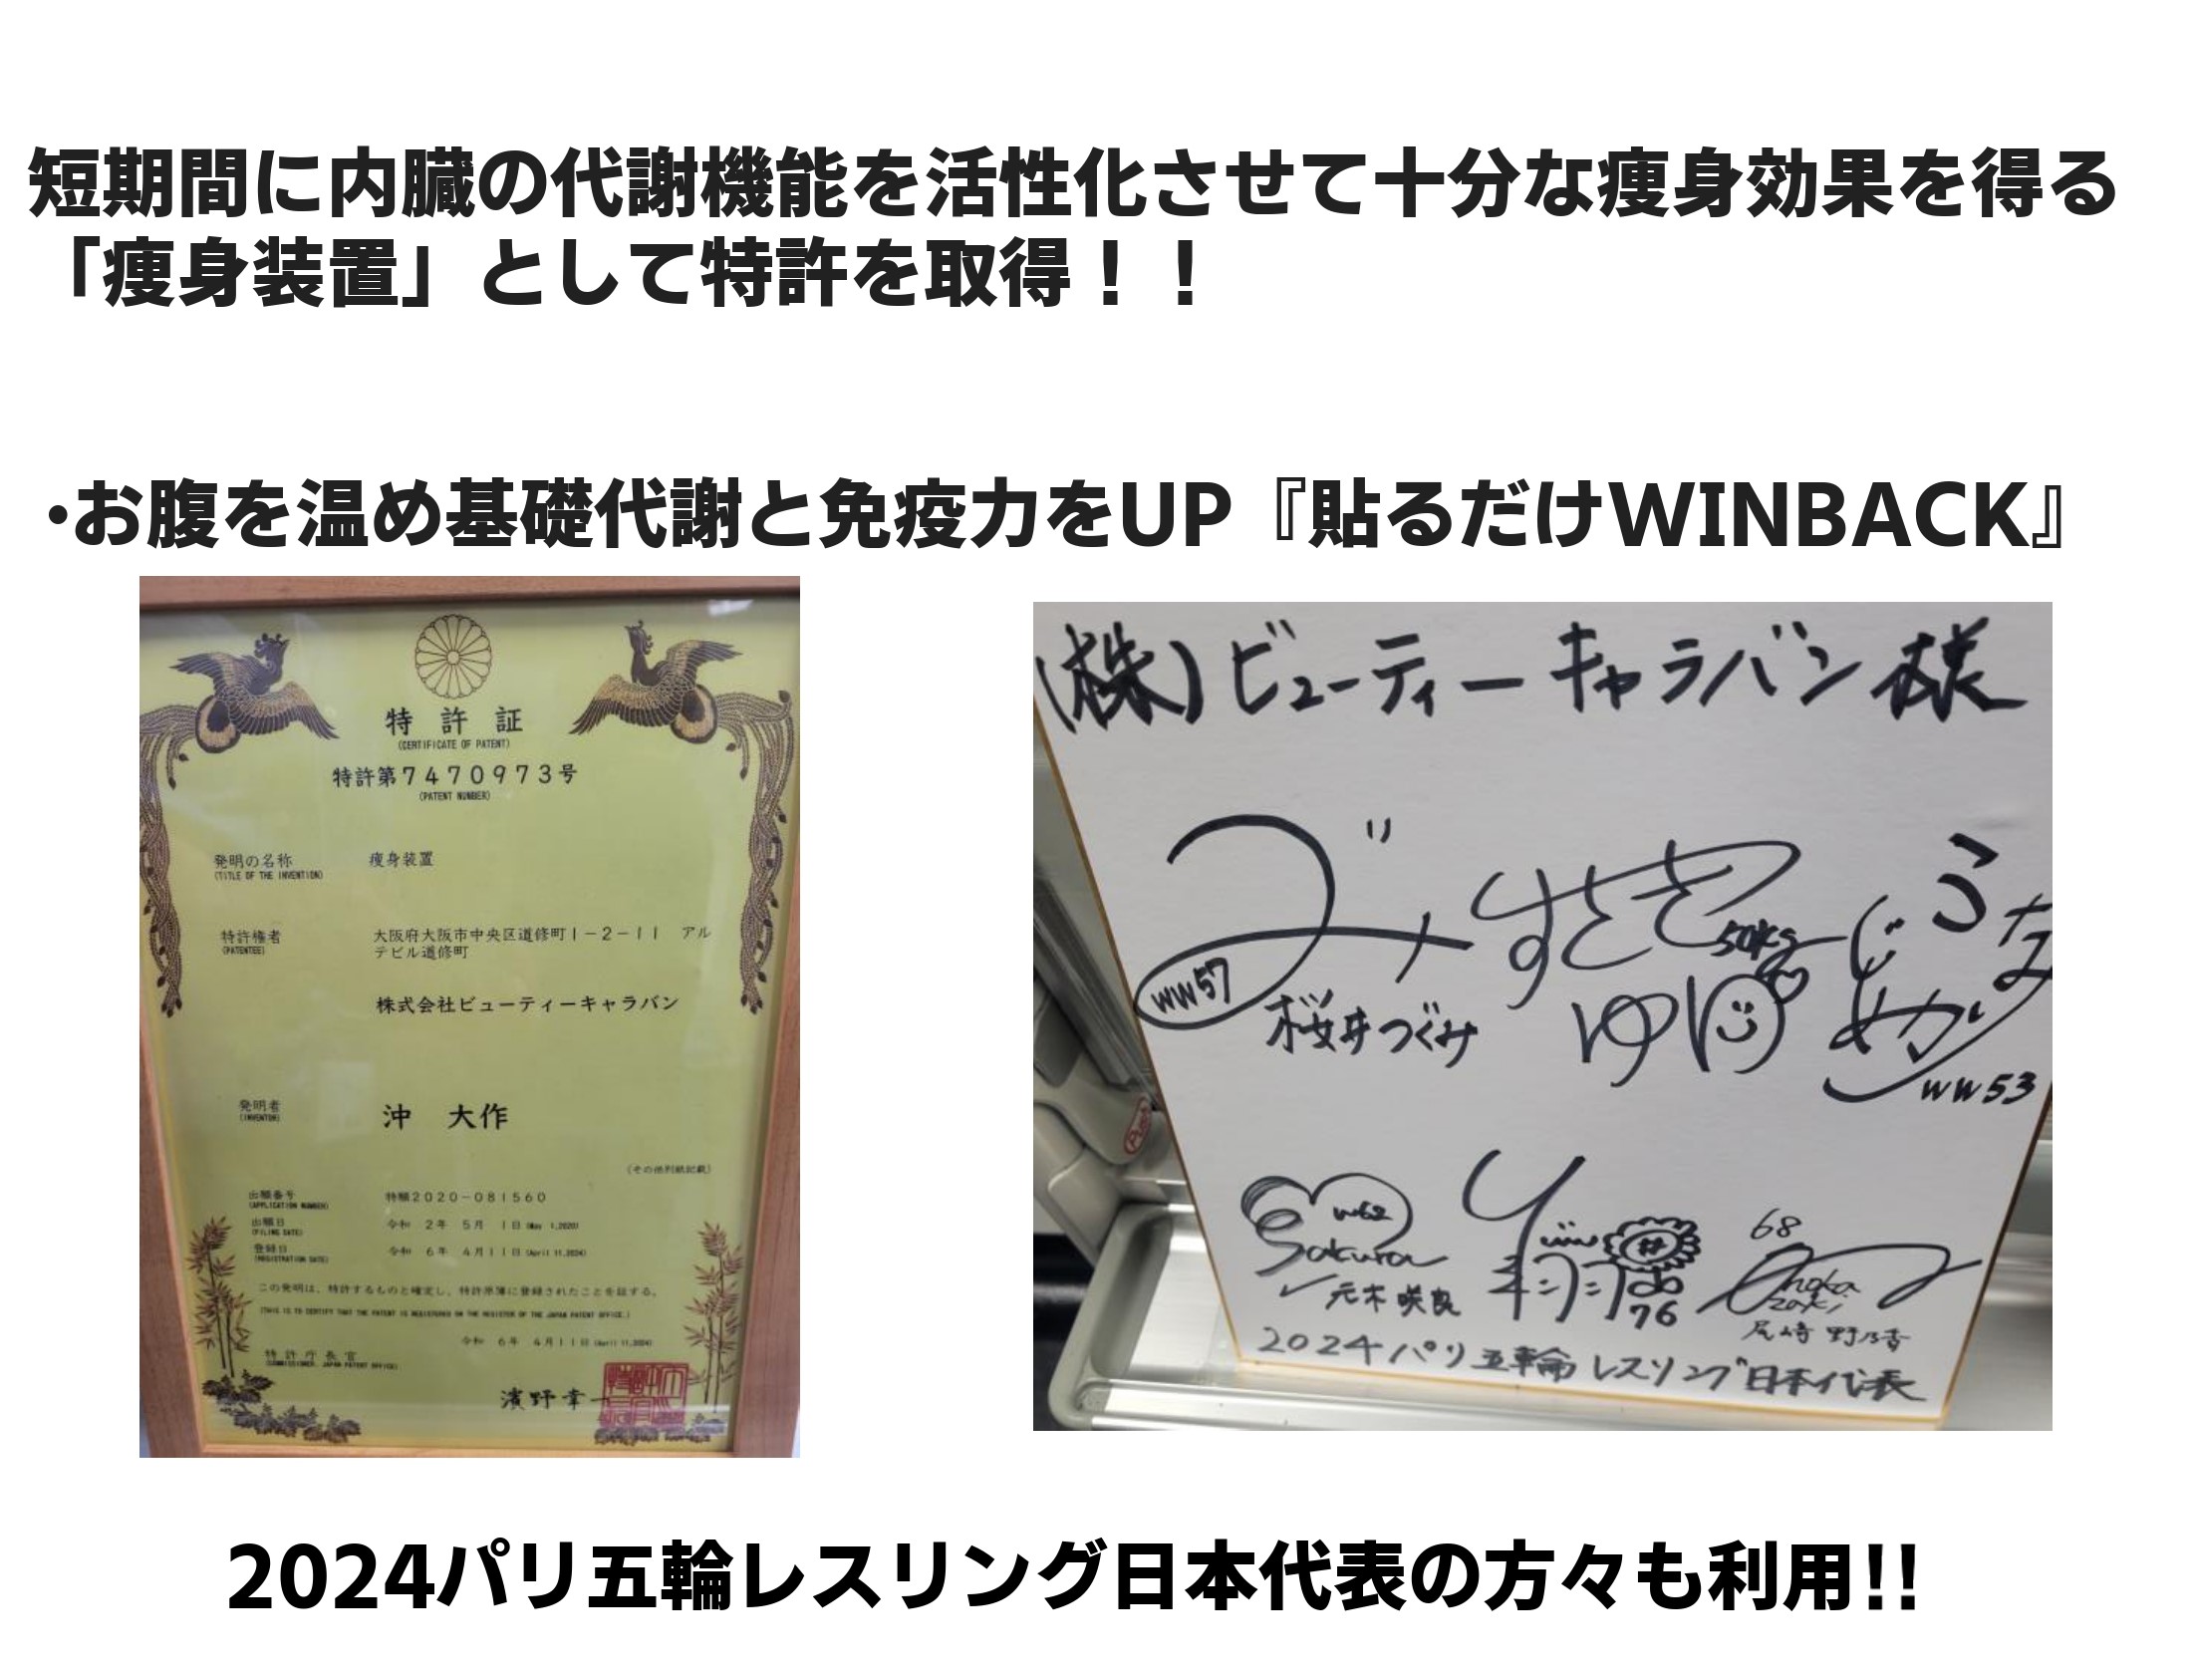 短期間に内臓の代謝機能を活性化させて十分な痩身効果を得る
「痩身装置」として特許を取得！！
•お腹を温め基礎代謝と免疫力をUP『貼るだけWINBACK』
特許証
(CERTIFICATE OF PATENT)
特許第7470973号
(PATENT NUMBER)
発明の名称 痩身装置
(TITLE OF THE INVENTION)
特許権者 大阪府大阪市中央区道修町1-2-11 アル
(PATENTEE) テビル道修町
株式会社ビューティーキャラバン
発明者 沖 大作
(INVENTOR)
(その他別紙記載)
出願番号 特願2020-081560
(APPLICATION NUMBER)
出願日 令和 2年 5月 1日(May 1,2020)
(FILING DATE)
登録日 令和 6年 4月11日(April 11,2024)
(REGISTRATION DATE)
この発明は、特許するものと確定し、特許原簿に登録されたことを証する。
(THIS IS TO CERTIFY THAT THE PATENT IS REGISTERED ON THE REGISTER OF THE JAPAN PATENT OFFICE.)
令和 6年 4月11日(April 11,2024)
特許庁長官
(COMMISSIONER, JAPAN PATENT OFFICE)
濱野幸一
(株)ビューティーキャラバン様
50kg
WW57
桜井つぐみ
WW53
W62
Sakura
元木咲良
76
68
尾崎野乃香
2024パリ五輪レスリング日本代表
Push
2024パリ五輪レスリング日本代表の方々も利用!!